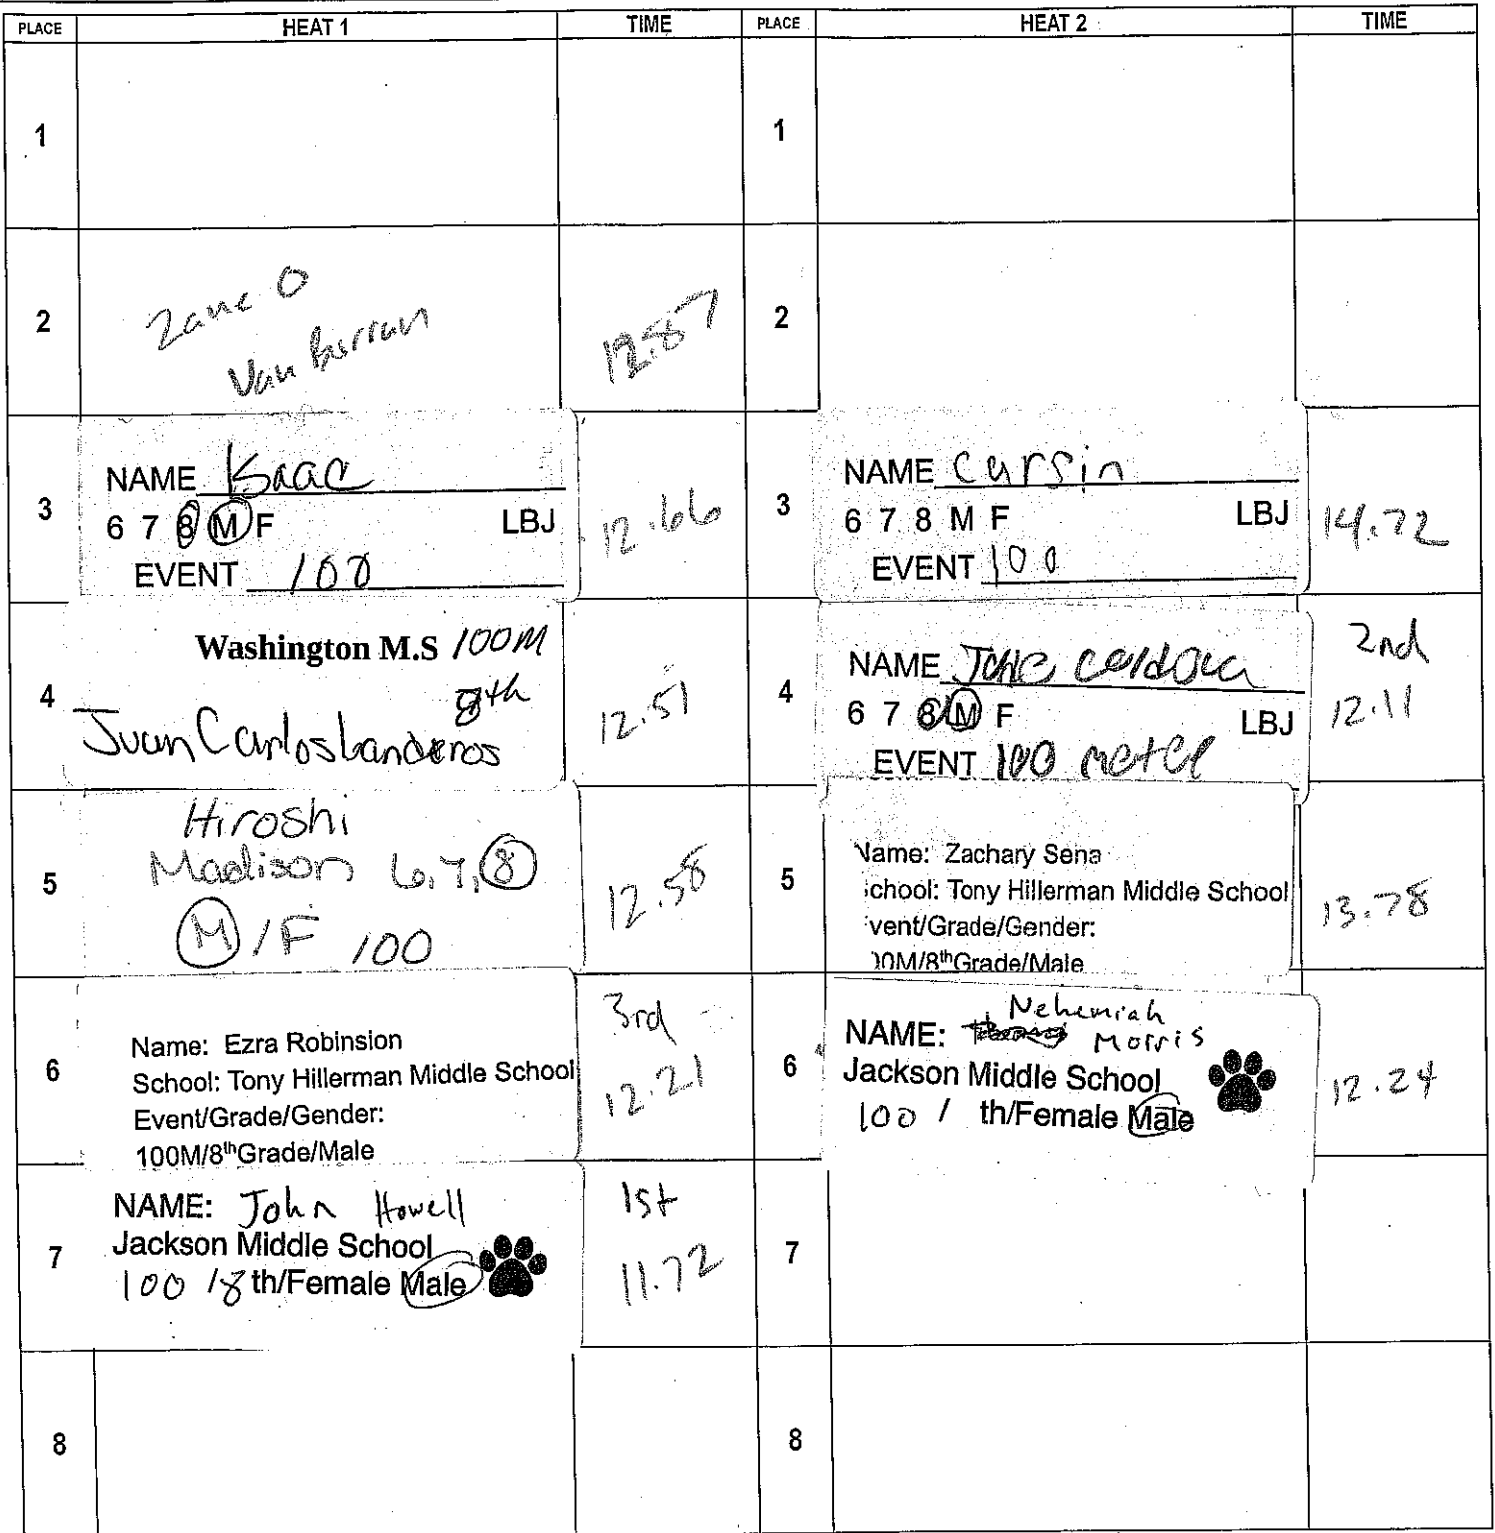 PLACE HEAT 1 TIME PLACE HEAT 2 TIME
1
1
2
Zane O
Van Burran
12.87
2
3
NAME Isaac
6 7 8 M F LBJ
EVENT 100
12.66
3
NAME Carsin
6 7 8 M F LBJ
EVENT 100
14.72
4
Washington M.S 100M
8th
Juan Carlos Landeros
12.51
4
NAME
6 7 8 M F LBJ
EVENT 100 meter
2nd
12.11
5
Hiroshi
Madison 6,7,8
M/F 100
12.58
5
Name: Zachary Sena
chool: Tony Hillerman Middle School
vent/Grade/Gender:
00M/8thGrade/Male
13.78
6
Name: Ezra Robinsion
School: Tony Hillerman Middle School
Event/Grade/Gender:
100M/8thGrade/Male
3rd
12.21
6
Nehemiah
NAME: Morris
Jackson Middle School
100 / th/Female Male
12.24
7
NAME: John Howell
Jackson Middle School
100 /8 th/Female Male
1st
11.72
7
8
8